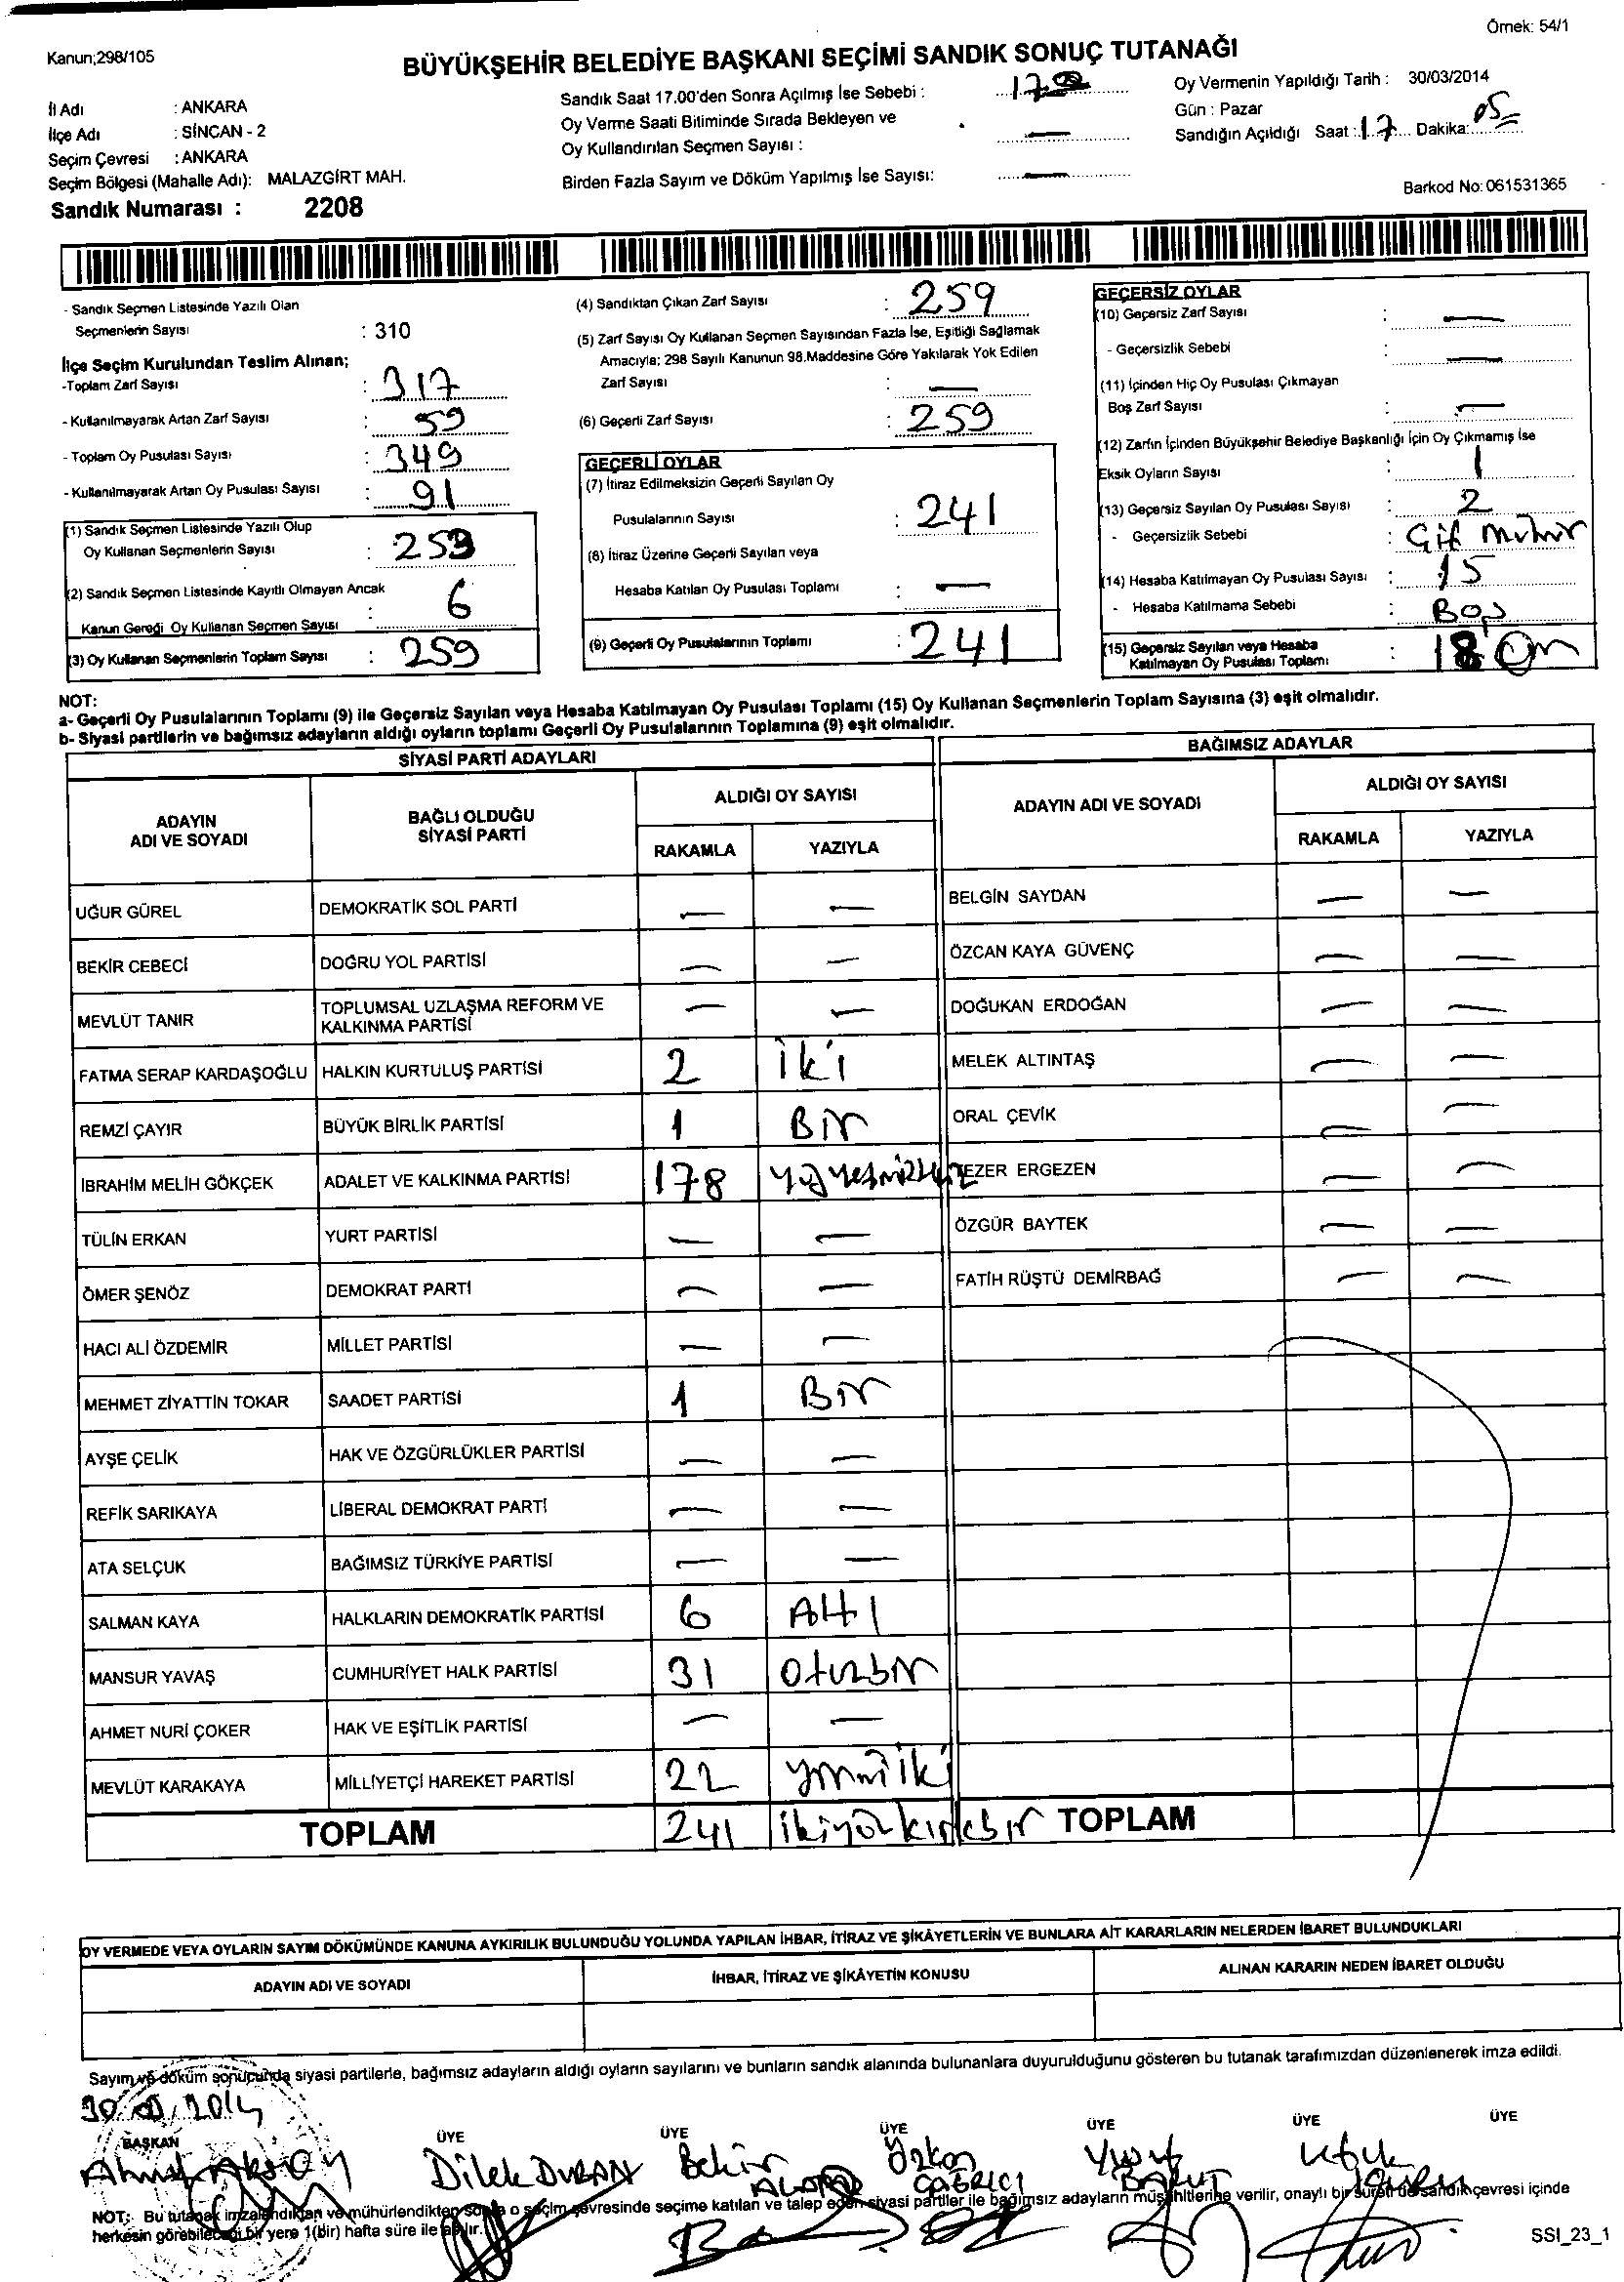 Örnek: 54/1
Kanun;298/105
BÜYÜKŞEHİR BELEDİYE BAŞKANI SEÇİMİ SANDIK SONUÇ TUTANAĞI
İl Adı : ANKARA
İlçe Adı : SİNCAN - 2
Seçim Çevresi : ANKARA
Seçim Bölgesi (Mahalle Adı): MALAZGİRT MAH.
Sandık Numarası : 2208
Sandık Saat 17.00'den Sonra Açılmış İse Sebebi : 17.00
Oy Verme Saati Bitiminde Sırada Bekleyen ve
Oy Kullandırılan Seçmen Sayısı : —
Birden Fazla Sayım ve Döküm Yapılmış İse Sayısı: —
Oy Vermenin Yapıldığı Tarih : 30/03/2014
Gün : Pazar
Sandığın Açıldığı Saat : 17 Dakika: 05
Barkod No: 061531365
- Sandık Seçmen Listesinde Yazılı Olan
Seçmenlerin Sayısı : 310
İlçe Seçim Kurulundan Teslim Alınan;
-Toplam Zarf Sayısı : 317
- Kullanılmayarak Artan Zarf Sayısı : 59
- Toplam Oy Pusulası Sayısı : 349
- Kullanılmayarak Artan Oy Pusulası Sayısı : 91
(1) Sandık Seçmen Listesinde Yazılı Olup
Oy Kullanan Seçmenlerin Sayısı : 253
(2) Sandık Seçmen Listesinde Kayıtlı Olmayan Ancak
Kanun Gereği Oy Kullanan Seçmen Sayısı : 6
(3) Oy Kullanan Seçmenlerin Toplam Sayısı : 259
(4) Sandıktan Çıkan Zarf Sayısı : 259
(5) Zarf Sayısı Oy Kullanan Seçmen Sayısından Fazla İse, Eşitliği Sağlamak
Amacıyla; 298 Sayılı Kanunun 98.Maddesine Göre Yakılarak Yok Edilen
Zarf Sayısı : —
(6) Geçerli Zarf Sayısı : 259
GEÇERLİ OYLAR
(7) İtiraz Edilmeksizin Geçerli Sayılan Oy
Pusulalarının Sayısı : 241
(8) İtiraz Üzerine Geçerli Sayılan veya
Hesaba Katılan Oy Pusulası Toplamı : —
(9) Geçerli Oy Pusulalarının Toplamı : 241
GEÇERSİZ OYLAR
(10) Geçersiz Zarf Sayısı : —
- Geçersizlik Sebebi : —
(11) İçinden Hiç Oy Pusulası Çıkmayan
Boş Zarf Sayısı : —
(12) Zarfın İçinden Büyükşehir Belediye Başkanlığı İçin Oy Çıkmamış İse
Eksik Oyların Sayısı : 1
(13) Geçersiz Sayılan Oy Pusulası Sayısı : 2
- Geçersizlik Sebebi : Çift Mühür
(14) Hesaba Katılmayan Oy Pusulası Sayısı : 15
- Hesaba Katılmama Sebebi : Boş
(15) Geçersiz Sayılan veya Hesaba
Katılmayan Oy Pusulası Toplamı : 18
NOT:
a- Geçerli Oy Pusulalarının Toplamı (9) ile Geçersiz Sayılan veya Hesaba Katılmayan Oy Pusulası Toplamı (15) Oy Kullanan Seçmenlerin Toplam Sayısına (3) eşit olmalıdır.
b- Siyasi partilerin ve bağımsız adayların aldığı oyların toplamı Geçerli Oy Pusulalarının Toplamına (9) eşit olmalıdır.
SİYASİ PARTİ ADAYLARI
ADAYIN ADI VE SOYADI BAĞLI OLDUĞU SİYASİ PARTİ ALDIĞI OY SAYISI
RAKAMLA YAZIYLA
UĞUR GÜREL DEMOKRATİK SOL PARTİ — —
BEKİR CEBECİ DOĞRU YOL PARTİSİ — —
MEVLÜT TANIR TOPLUMSAL UZLAŞMA REFORM VE KALKINMA PARTİSİ — —
FATMA SERAP KARDAŞOĞLU HALKIN KURTULUŞ PARTİSİ 2 iki
REMZİ ÇAYIR BÜYÜK BİRLİK PARTİSİ 1 Bir
İBRAHİM MELİH GÖKÇEK ADALET VE KALKINMA PARTİSİ 178
TÜLİN ERKAN YURT PARTİSİ — —
ÖMER ŞENÖZ DEMOKRAT PARTİ — —
HACI ALİ ÖZDEMİR MİLLET PARTİSİ — —
MEHMET ZİYATTİN TOKAR SAADET PARTİSİ 1 Bir
AYŞE ÇELİK HAK VE ÖZGÜRLÜKLER PARTİSİ — —
REFİK SARIKAYA LİBERAL DEMOKRAT PARTİ — —
ATA SELÇUK BAĞIMSIZ TÜRKİYE PARTİSİ — —
SALMAN KAYA HALKLARIN DEMOKRATİK PARTİSİ 6 Altı
MANSUR YAVAŞ CUMHURİYET HALK PARTİSİ 31 Otuzbir
AHMET NURİ ÇOKER HAK VE EŞİTLİK PARTİSİ — —
MEVLÜT KARAKAYA MİLLİYETÇİ HAREKET PARTİSİ 22 yirmiiki
TOPLAM 241 ikiyüzkırkbir
BAĞIMSIZ ADAYLAR
ADAYIN ADI VE SOYADI ALDIĞI OY SAYISI
RAKAMLA YAZIYLA
BELGİN SAYDAN — —
ÖZCAN KAYA GÜVENÇ — —
DOĞUKAN ERDOĞAN — —
MELEK ALTINTAŞ — —
ORAL ÇEVİK — —
EZER ERGEZEN — —
ÖZGÜR BAYTEK — —
FATİH RÜŞTÜ DEMİRBAĞ — —
TOPLAM
OY VERMEDE VEYA OYLARIN SAYIM DÖKÜMÜNDE KANUNA AYKIRILIK BULUNDUĞU YOLUNDA YAPILAN İHBAR, İTİRAZ VE ŞİKÂYETLERİN VE BUNLARA AİT KARARLARIN NELERDEN İBARET BULUNDUKLARI
ADAYIN ADI VE SOYADI İHBAR, İTİRAZ VE ŞİKÂYETİN KONUSU ALINAN KARARIN NEDEN İBARET OLDUĞU
Sayım ve döküm sonucunda siyasi partilerle, bağımsız adayların aldığı oyların sayılarını ve bunların sandık alanında bulunanlara duyurulduğunu gösteren bu tutanak tarafımızdan düzenlenerek imza edildi.
BAŞKAN ÜYE ÜYE ÜYE ÜYE ÜYE ÜYE
Ahmet Aksoy Dilek DURAN Bekir Özkan ÇAĞRICI Yusuf Ufuk
NOT: Bu tutanak imzalandıktan ve mühürlendikten sonra o seçim çevresinde seçime katılan ve talep eden siyasi partiler ile bağımsız adayların müşahitlerine verilir, onaylı bir sureti de sandık çevresi içinde
herkesin görebileceği bir yere 1(bir) hafta süre ile asılır.
SSI_23_1